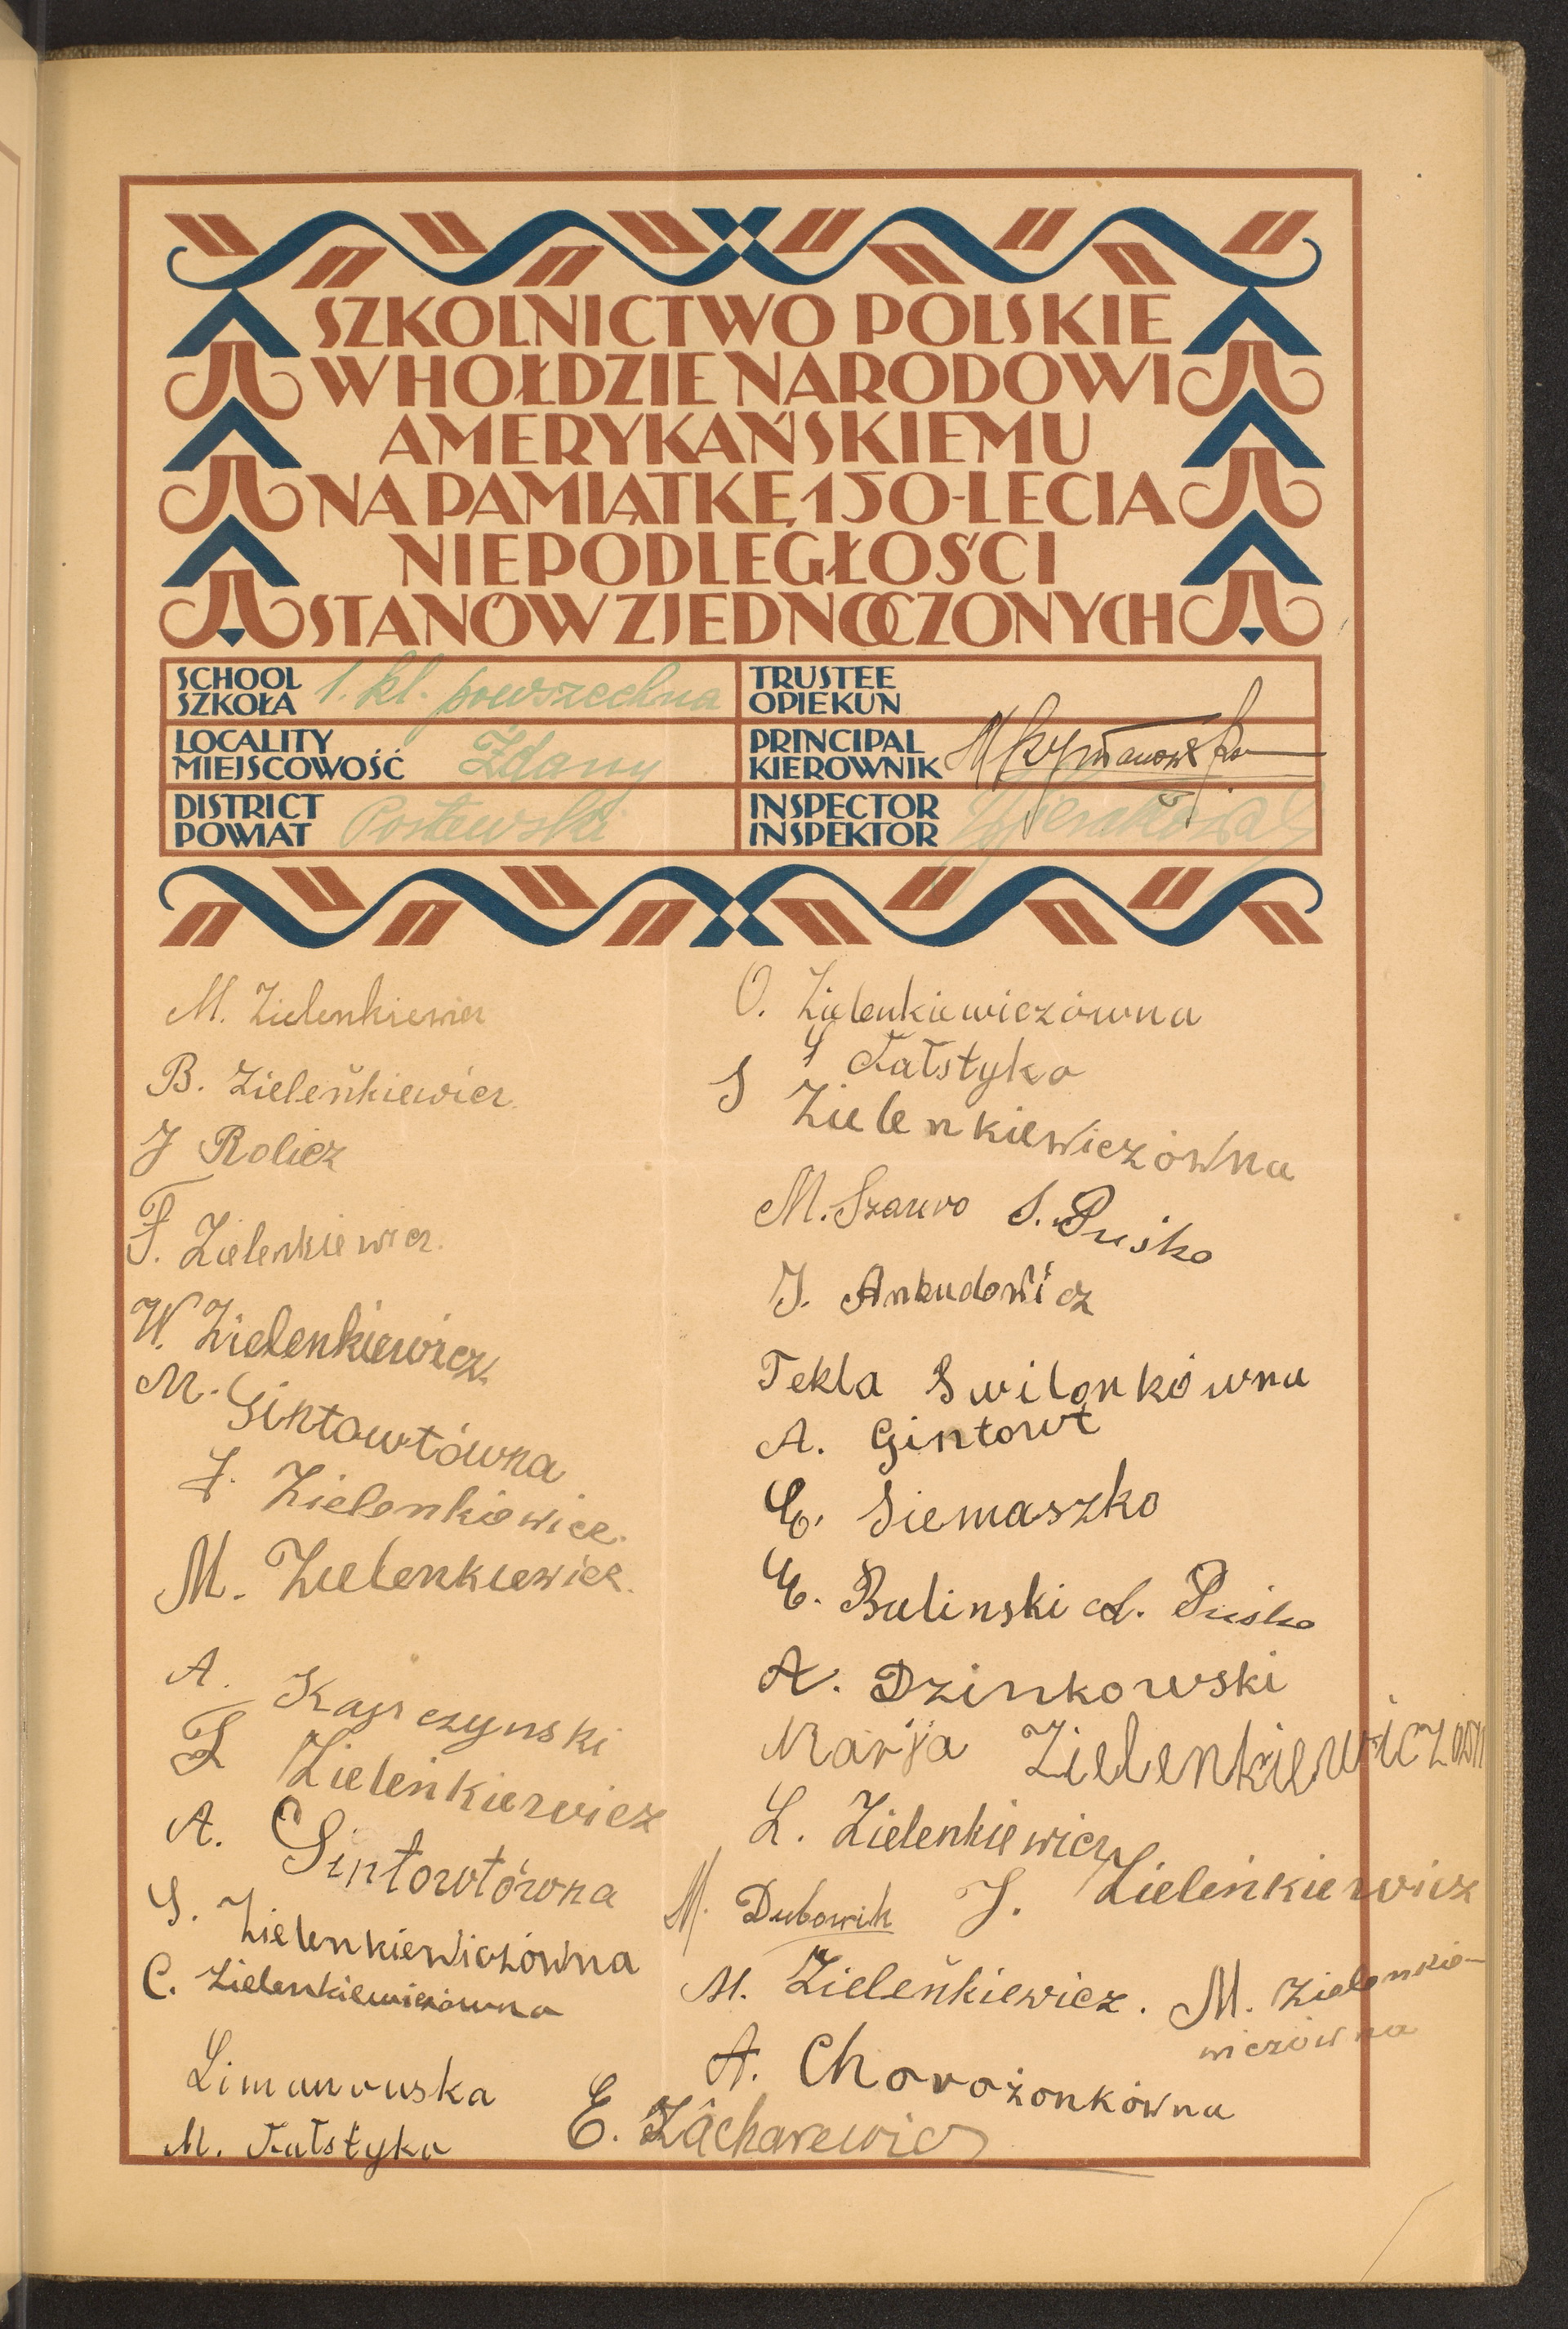 SZKOLNICTWO POLSKIE
W HOŁDZIE NARODOWI
AMERYKAŃSKIEMU
NA PAMIĄTKĘ 150-LECIA
NIEPODLEGŁOŚCI
STANÓW ZJEDNOCZONYCH
SCHOOL
SZKOŁA 1. kl. powszechna
LOCALITY
MIEJSCOWOŚĆ Zdany
DISTRICT
POWIAT Postawski
TRUSTEE
OPIEKUN
PRINCIPAL
KIEROWNIK
INSPECTOR
INSPEKTOR
M. Zielenkiewicz
B. Zieleńkiewicz
J Rolicz
F. Zielenkiewicz.
W. Zielenkiewicz
M. Gintowtówna
J. Zielenkiewicz.
M. Zielenkiewicz.
A.
Zieleńkiewicz
A. Gintowtówna
S. Zielenkiewiczówna
C. Zielenkiewiczówna
Limanowska
M. Fałstyka
O. Zielenkiewiczówna
Fałstyka
S Zielenkiewiczówna
M. Szarwo S. Puśko
J. Ankudowicz
Tekla Swilonkówna
A. Gintowt
E. Siemaszko
E. Balinski A. Puśko
A. Dzinkowski
Marja Zielenkiewiczówn
L. Zielenkiewicz
M. Dubowik J. Zieleńkiewicz
M. Zieleńkiewicz. M. Zielenkie-
wiczówna
A. Chorożonkówna
E. Zacharewicz